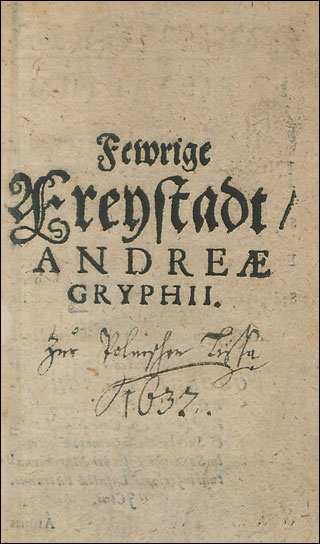 Fewrige
Freystadt /
ANDREÆ
GRYPHII.
Zur Polnischen Lissa
1637.